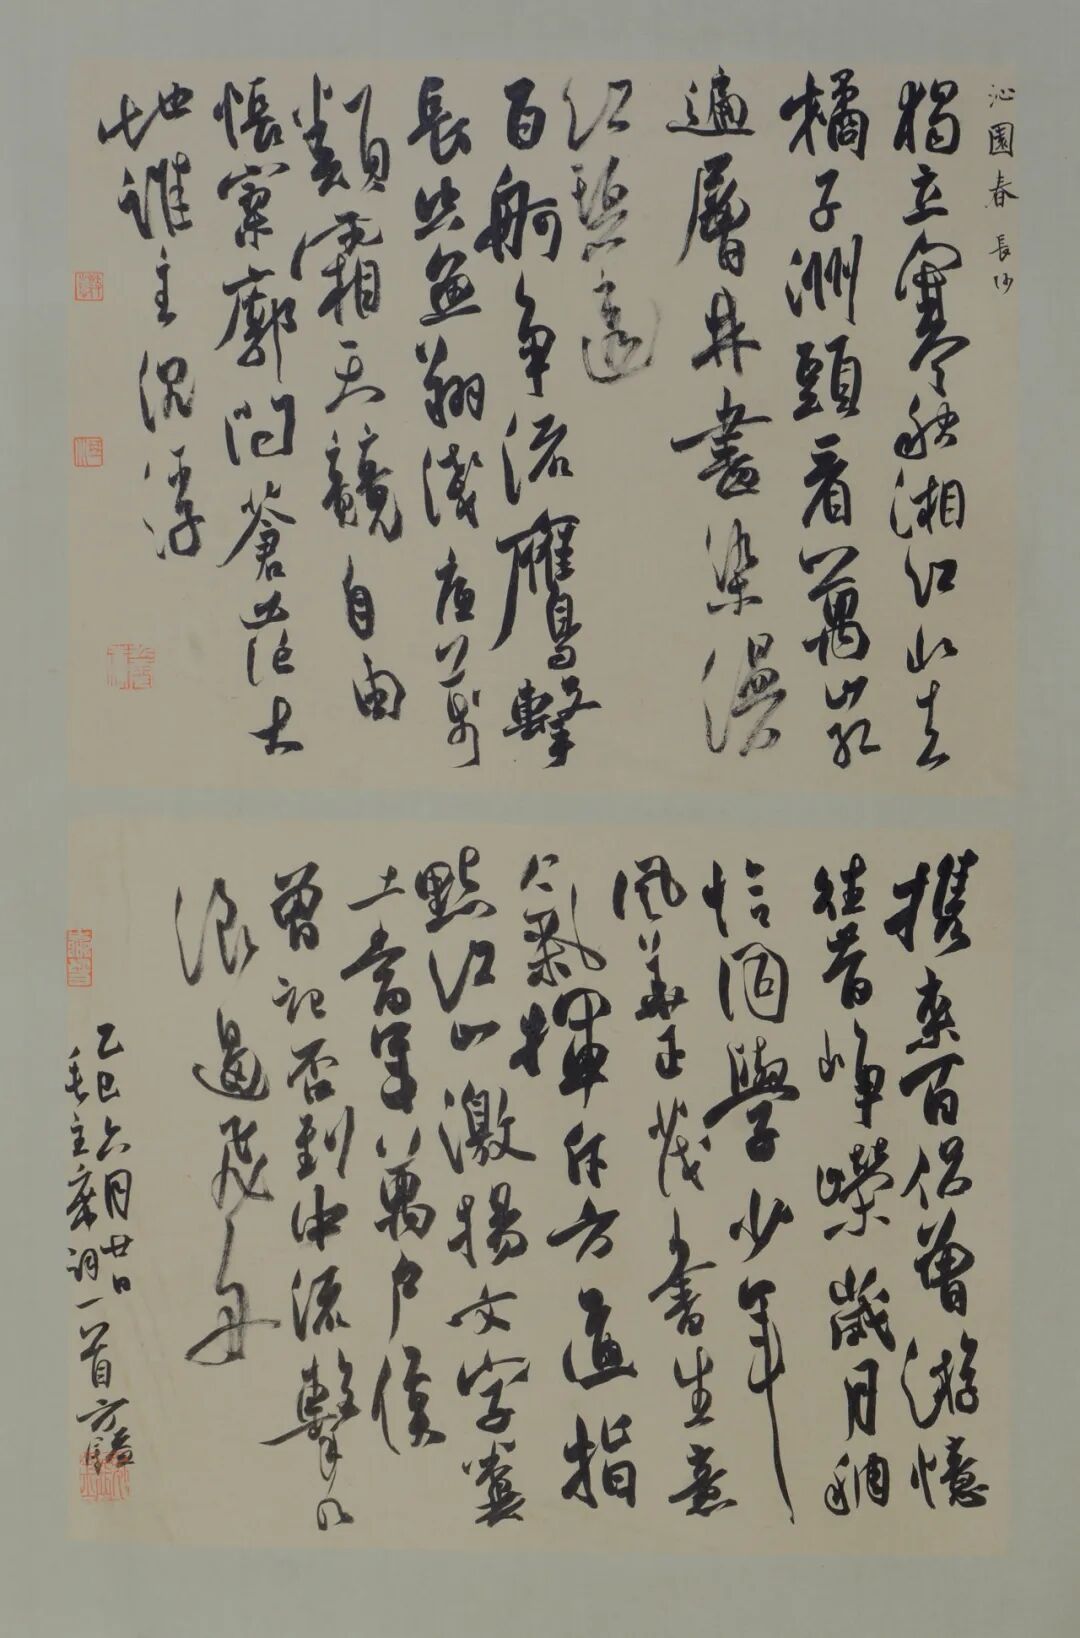 沁園春 長沙
獨立寒秋湘江北去
橘子洲頭看萬山紅
遍層林盡染漫
江碧透
百舸争流鷹擊
長空魚翔淺底萬
類霜天競自由
悵寥廓問蒼茫大
地誰主沉浮
携來百侣曾游憶
往昔崢嶸歲月稠
恰同學少年
風華正茂書生意
氣揮斥方遒指
點江山激揚文字糞
土當年萬户侯
曾記否到中流擊水
浪遏飛舟
乙巳六月廿日
毛主席詞一首